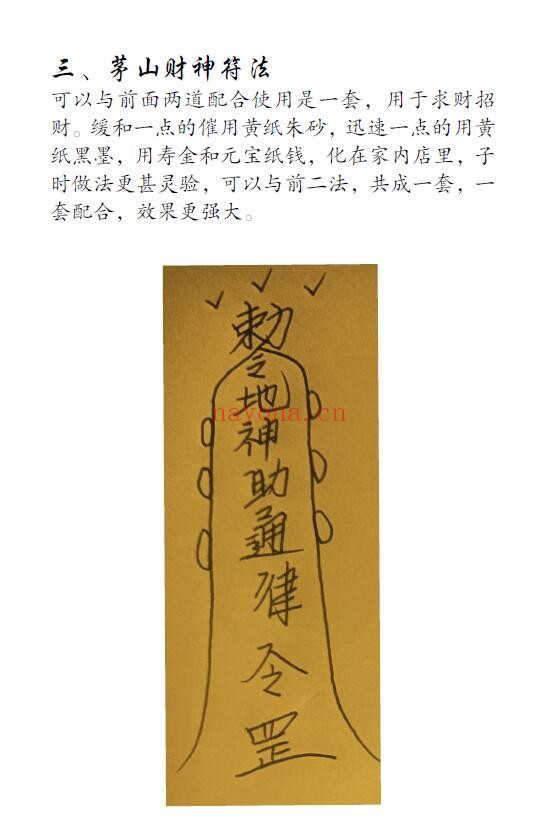 三、茅山财神符法
可以与前面两道配合使用是一套，用于求财招
财。缓和一点的催用黄纸朱砂，迅速一点的用黄
纸黑墨，用寿金和元宝纸钱，化在家内店里，子
时做法更甚灵验，可以与前二法，共成一套，一
套配合，效果更强大。
勅令地神助通律令罡
nayona.cn